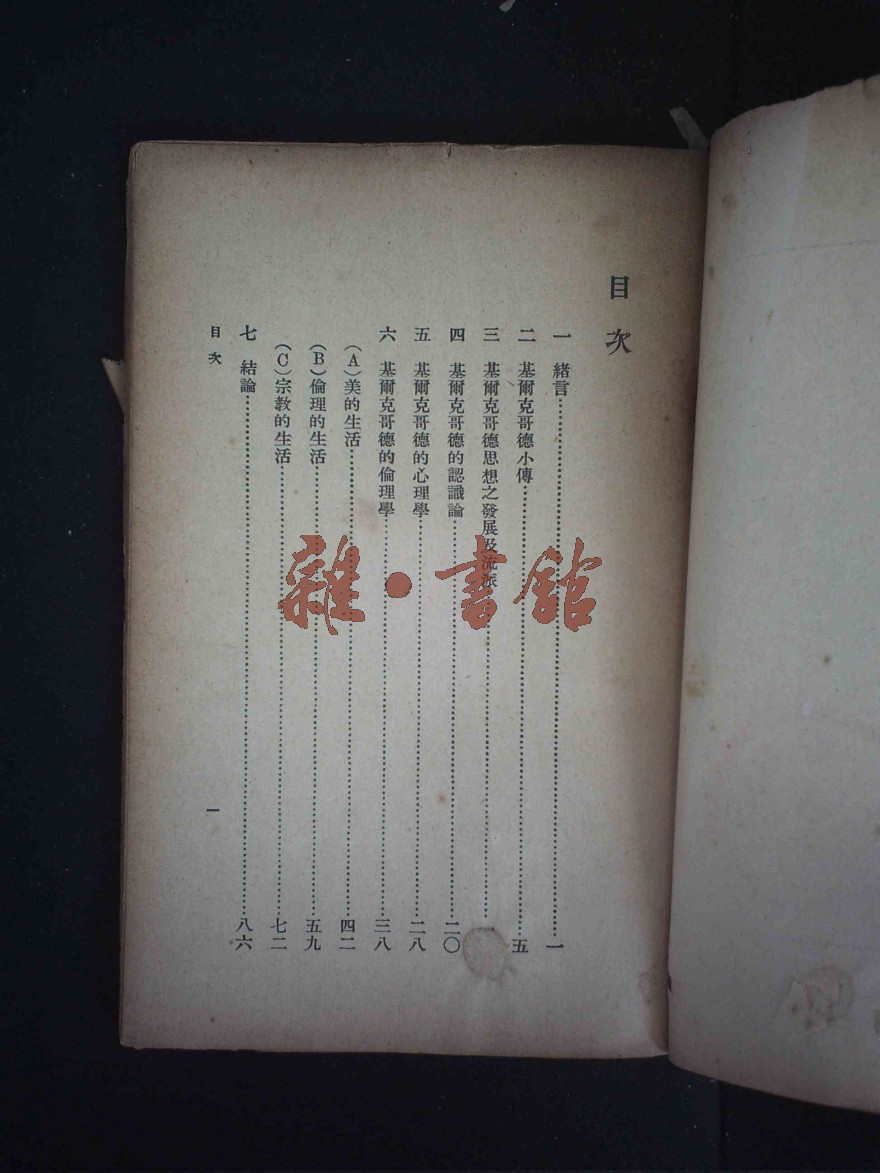 目次
一 緒言…………一
二 基爾克哥德小傳…………五
三 基爾克哥德思想之發展及流派…………
四 基爾克哥德的認識論…………二〇
五 基爾克哥德的心理學…………二八
六 基爾克哥德的倫理學…………三八
(A)美的生活…………四二
(B)倫理的生活…………五九
(C)宗教的生活…………七二
七 結論…………八六
目次
一
雜·書館